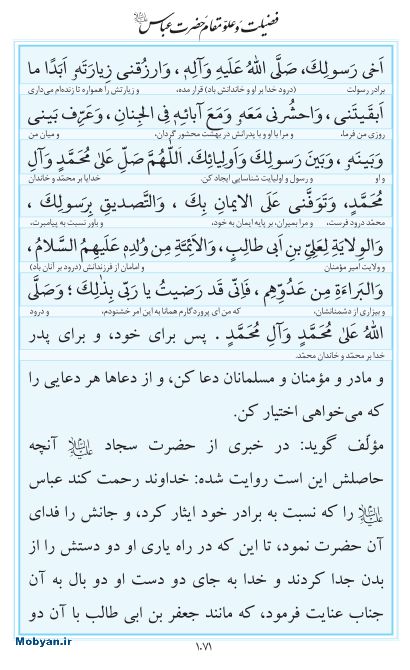 فضیلت و علوّ مقام حضرت عباس علیه‌السلام
اَخی رَسولِكَ، صَلَّی اللهُ عَلَیهِ وَآلِهِ، وَارزُقنی زِیارَتَهُ اَبَدًا ما
برادر رسولت (درود خدا بر او و خاندانش باد) قرار مده، و زیارتش را همواره تا زنده‌ام می‌داری
اَبقَیتَنی، وَاحشُرنی مَعَهُ وَمَعَ آبائِهِ فِی الجِنانِ، وَعَرِّف بَینی
روزی من فرما، و مرا با او و با پدرانش در بهشت محشور گردان، و میان من
وَبَینَهُ، وَبَینَ رَسولِكَ وَاَولِیائِكَ. اَللّهُمَّ صَلِّ عَلیٰ مُحَمَّدٍ وَآلِ
و او و رسول و اولیایت شناسایی ایجاد کن. خدایا بر محمّد و خاندان
مُحَمَّدٍ، وَتَوَفَّنی عَلَی الایمانِ بِكَ، وَالتَّصدیقِ بِرَسولِكَ،
محمّد درود فرست، و مرا بمیران، بر پایه ایمان به خود، و باور نسبت به پیامبرت،
وَالوِلایَةِ لِعَلِیِّ بنِ اَبی طالِبٍ، وَالاَئِمَّةِ مِن وُلدِهِ عَلَیهِمُ السَّلامُ،
و ولایت امیر مؤمنان و امامان از فرزندانش (درود بر آنان باد)
وَالبَراءَةِ مِن عَدُوِّهِم، فَاِنّی قَد رَضیتُ یا رَبّی بِذٰلِكَ؛ وَصَلَّی
و بیزاری از دشمنانشان، که من ای پروردگارم همانا به این امر خشنودم، و درود
اللهُ عَلیٰ مُحَمَّدٍ وَآلِ مُحَمَّدٍ. پس برای خود، و برای پدر
خدا بر محمّد و خاندان محمّد.
و مادر و مؤمنان و مسلمانان دعا کن، و از دعاها هر دعایی را
که می‌خواهی اختیار کن.
مؤلّف گوید: در خبری از حضرت سجاد علیه‌السلام آنچه
حاصلش این است روایت شده: خداوند رحمت کند عباس
علیه‌السلام را که نسبت به برادر خود ایثار کرد، و جانش را فدای
آن حضرت نمود، تا این که در راه یاری او دو دستش را از
بدن جدا کردند و خدا به جای دو دست او دو بال به آن
جناب عنایت فرمود، که مانند جعفر بن ابی طالب با آن دو
۱۰۷۱
Mobyan.ir